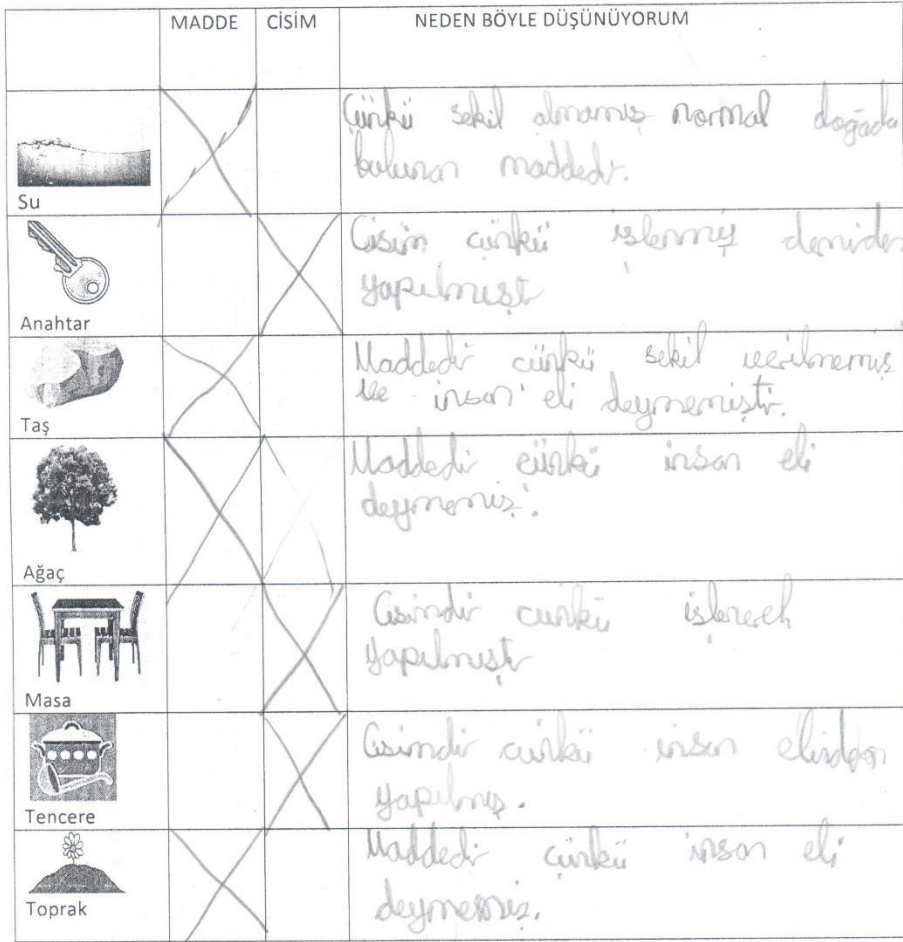 MADDE CİSİM NEDEN BÖYLE DÜŞÜNÜYORUM
Su
Çünkü sekil almamış normal doğada
bulunan maddedir.
Anahtar
Cisim çünkü işlenmiş demirden
yapılmışt
Taş
Maddedir cünkü sekil verilmemiş
ve insan eli deymemiştir.
Ağaç
Maddedir cünkü insan eli
deymemiş.
Masa
Cisimdir cunkü işlenerek
yapılmıştı
Tencere
Cisimdir cunkü insan elinden
yapılmış.
Toprak
Maddedir cünkü insan eli
deymemiş.